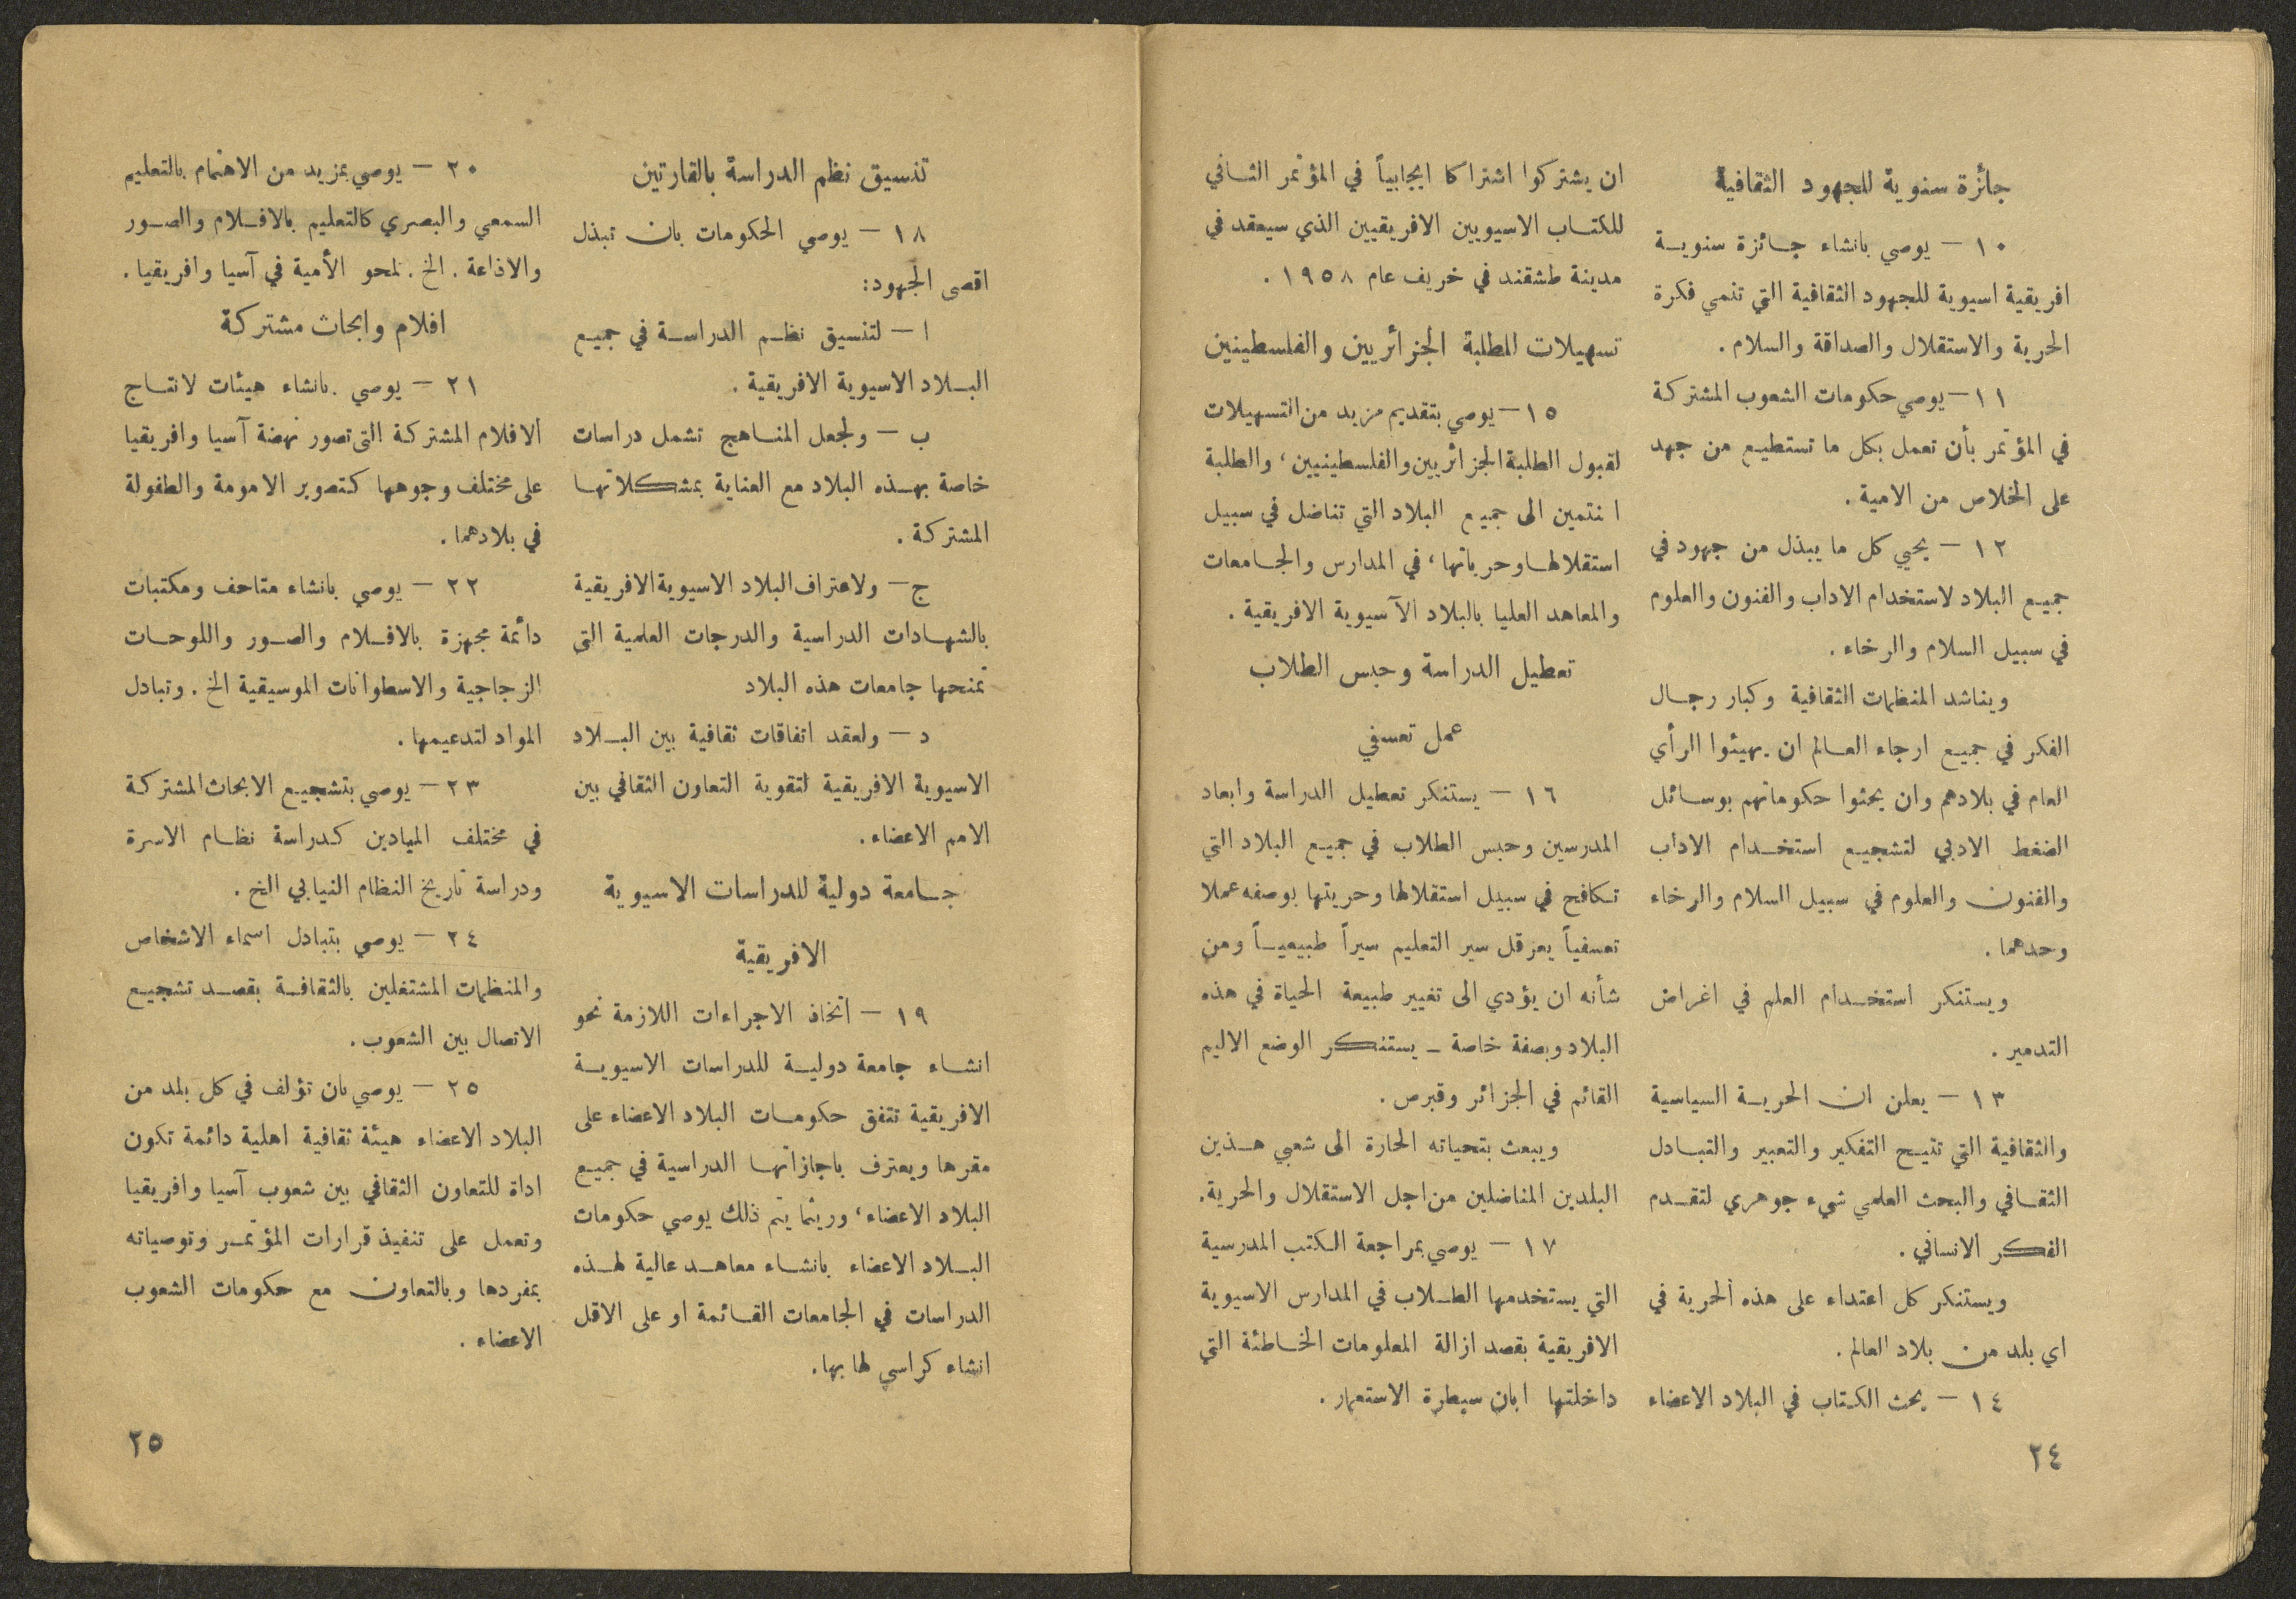 جائزة سنوية للجهود الثقافية
١٠ – يوصي بانشاء جائزة سنوية
افريقية اسيوية للجهود الثقافية التي تنمي فكرة
الحرية والاستقلال والصداقة والسلام.
١١ – يوصي حكومات الشعوب المشتركة
في المؤتمر بأن تعمل بكل ما تستطيع من جهد
على الخلاص من الامية.
١٢ – يحيي كل ما يبذل من جهود في
جميع البلاد لاستخدام الاداب والفنون والعلوم
في سبيل السلام والرخاء.
ويناشد المنظمات الثقافية وكبار رجال
الفكر في جميع ارجاء العالم ان يهيئوا الرأي
العام في بلادهم وان يحثوا حكوماتهم بوسائل
الضغط الادبي لتشجيع استخدام الاداب
والفنون والعلوم في سبيل السلام والرخاء
وحدهما.
ويستنكر استخدام العلم في اغراض
التدمير.
١٣ – يعلن ان الحرية السياسية
والثقافية التي تتيح التفكير والتعبير والتبادل
الثقافي والبحث العلمي شيء جوهري لتقدم
الفكر الانساني.
ويستنكر كل اعتداء على هذه الحرية في
اي بلد من بلاد العالم.
١٤ – يحث الكتاب في البلاد الاعضاء
ان يشتركوا اشتراكا ايجابياً في المؤتمر الثاني
للكتاب الاسيويين الافريقيين الذي سيعقد في
مدينة طشقند في خريف عام ١٩٥٨.
تسهيلات للطلبة الجزائريين والفلسطينين
١٥ – يوصي بتقديم مزيد من التسهيلات
لقبول الطلبة الجزائريين والفلسطينيين، والطلبة
ا نتمين الى جميع البلاد التي تناضل في سبيل
استقلالها وحرياتها، في المدارس والجامعات
والمعاهد العليا بالبلاد الآسيوية الافريقية.
تعطيل الدراسة وحبس الطلاب
عمل تعسفي
١٦ – يستنكر تعطيل الدراسة وابعاد
المدرسين وحبس الطلاب في جميع البلاد التي
تكافح في سبيل استقلالها وحريتها بوصفه عملا
تعسفياً يعرقل سير التعليم سيراً طبيعياً ومن
شأنه ان يؤدي الى تغيير طبيعة الحياة في هذه
البلاد وبصفة خاصة – يستنكر الوضع الاليم
القائم في الجزائر وقبرص.
ويبعث بتحياته الحارة الى شعبي هذين
البلدين المناضلين من اجل الاستقلال والحرية.
١٧ – يوصي بمراجعة الكتب المدرسية
التي يستخدمها الطلاب في المدارس الاسيوية
الافريقية بقصد ازالة المعلومات الخاطئة التي
داخلتها ابان سيطرة الاستعمار.
٢٤
تنسيق نظم الدراسة بالقارتين
١٨ – يوصي الحكومات بان تبذل
اقصى الجهود:
ا – لتنسيق نظم الدراسة في جميع
البلاد الاسيوية الافريقية.
ب – ولجعل المناهج تشمل دراسات
خاصة بهذه البلاد مع العناية بمشكلاتها
المشتركة.
ج – ولاعتراف البلاد الاسيوية الافريقية
بالشهادات الدراسية والدرجات العلمية التي
تمنحها جامعات هذه البلاد
د – ولعقد اتفاقات ثقافية بين البلاد
الاسيوية الافريقية لتقوية التعاون الثقافي بين
الامم الاعضاء.
جامعة دولية للدراسات الاسيوية
الافريقية
١٩ – اتخاذ الاجراءات اللازمة نحو
انشاء جامعة دولية للدراسات الاسيوية
الافريقية تتفق حكومات البلاد الاعضاء على
مقرها ويعترف باجازاتها الدراسية في جميع
البلاد الاعضاء، وريثما يتم ذلك يوصي حكومات
البلاد الاعضاء بانشاء معاهد عالية لهذه
الدراسات في الجامعات القائمة او على الاقل
انشاء كراسي لها بها.
٢٠ – يوصي بمزيد من الاهتمام بالتعليم
السمعي والبصري كالتعليم بالافلام والصور
والاذاعة. الخ. لمحو الأمية في آسيا وافريقيا.
افلام وابحاث مشتركة
٢١ – يوصي بانشاء هيئات لانتاج
الافلام المشتركة التي تصور نهضة آسيا وافريقيا
على مختلف وجوهها كتصوير الامومة والطفولة
في بلادهما.
٢٢ – يوصي بانشاء متاحف ومكتبات
دائمة مجهزة بالافلام والصور واللوحات
الزجاجية والاسطوانات الموسيقية الخ. وتبادل
المواد لتدعيمها.
٢٣ – يوصي بتشجيع الابحاث المشتركة
في مختلف الميادين كدراسة نظام الاسرة
ودراسة تاريخ النظام النيابي الخ.
٢٤ – يوصي بتبادل اسماء الاشخاص
والمنظمات المشتغلين بالثقافة بقصد تشجيع
الاتصال بين الشعوب.
٢٥ – يوصي بان تؤلف في كل بلد من
البلاد الاعضاء هيئة ثقافية اهلية دائمة تكون
اداة للتعاون الثقافي بين شعوب آسيا وافريقيا
وتعمل على تنفيذ قرارات المؤتمر وتوصياته
بمفردها وبالتعاون مع حكومات الشعوب
الاعضاء.
٢٥